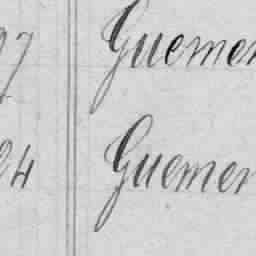 27 Guemen
24 Guemen